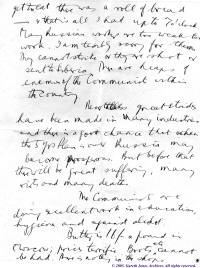 get to eat there was a roll of bread
— & that is all I had up to 7 o'clock.
Many Russians who are too weak to
work. I am terribly sorry for them.
They cannot strike or they are shot or
sent to Siberia. There are heaps of
enemies of the Communist within
the country.
Nevertheless great strides
have been made in many industries
and there is a good chance that when
the 5 years is over Russia may
become prosperous. But before that
there will be great suffering, many
riots and many deaths.
The Communists are
doing excellent work in education,
hygiene and against alcohol.
Butter is 16/- a pound in
Moscow; prices terrific. Boots cannot
be had. There is nothing in the shops.
© 2005 Gareth Jones Archives. All rights reserved